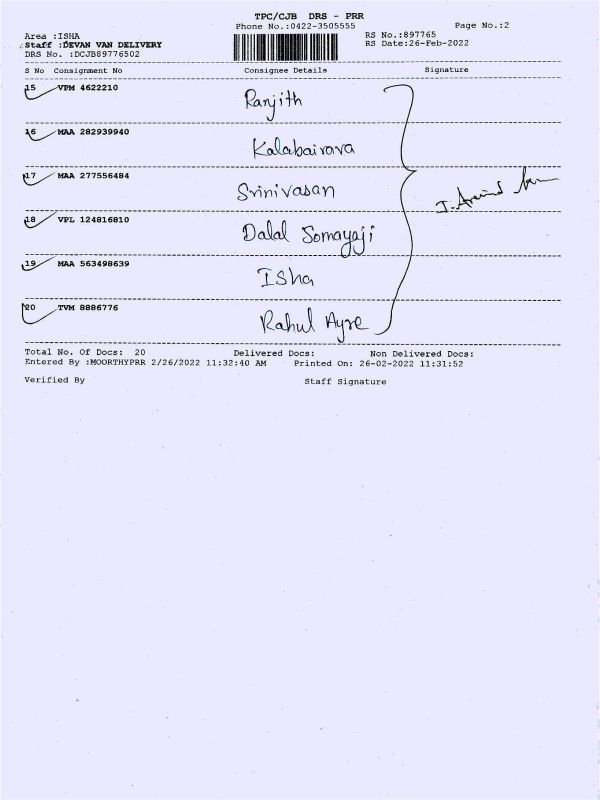 TPC/CJB DRS - PRR
Phone No.:0422-3505555 Page No.:2
Area :ISHA RS No.:897765
Staff :DEVAN VAN DELIVERY RS Date:26-Feb-2022
DRS No. :DCJB89776502
S No Consignment No Consignee Details Signature
15 VPM 4622210 Ranjith
16 MAA 282939940 Kalabairava
17 MAA 277556484 Srinivasan
I. Aravind
18 VPL 124816810 Dalal Somayaji
19 MAA 563498639 Isha
20 TVM 8886776 Rahul Ayre
Total No. Of Docs: 20 Delivered Docs: Non Delivered Docs:
Entered By :MOORTHYPRR 2/26/2022 11:32:40 AM Printed On: 26-02-2022 11:31:52
Verified By Staff Signature